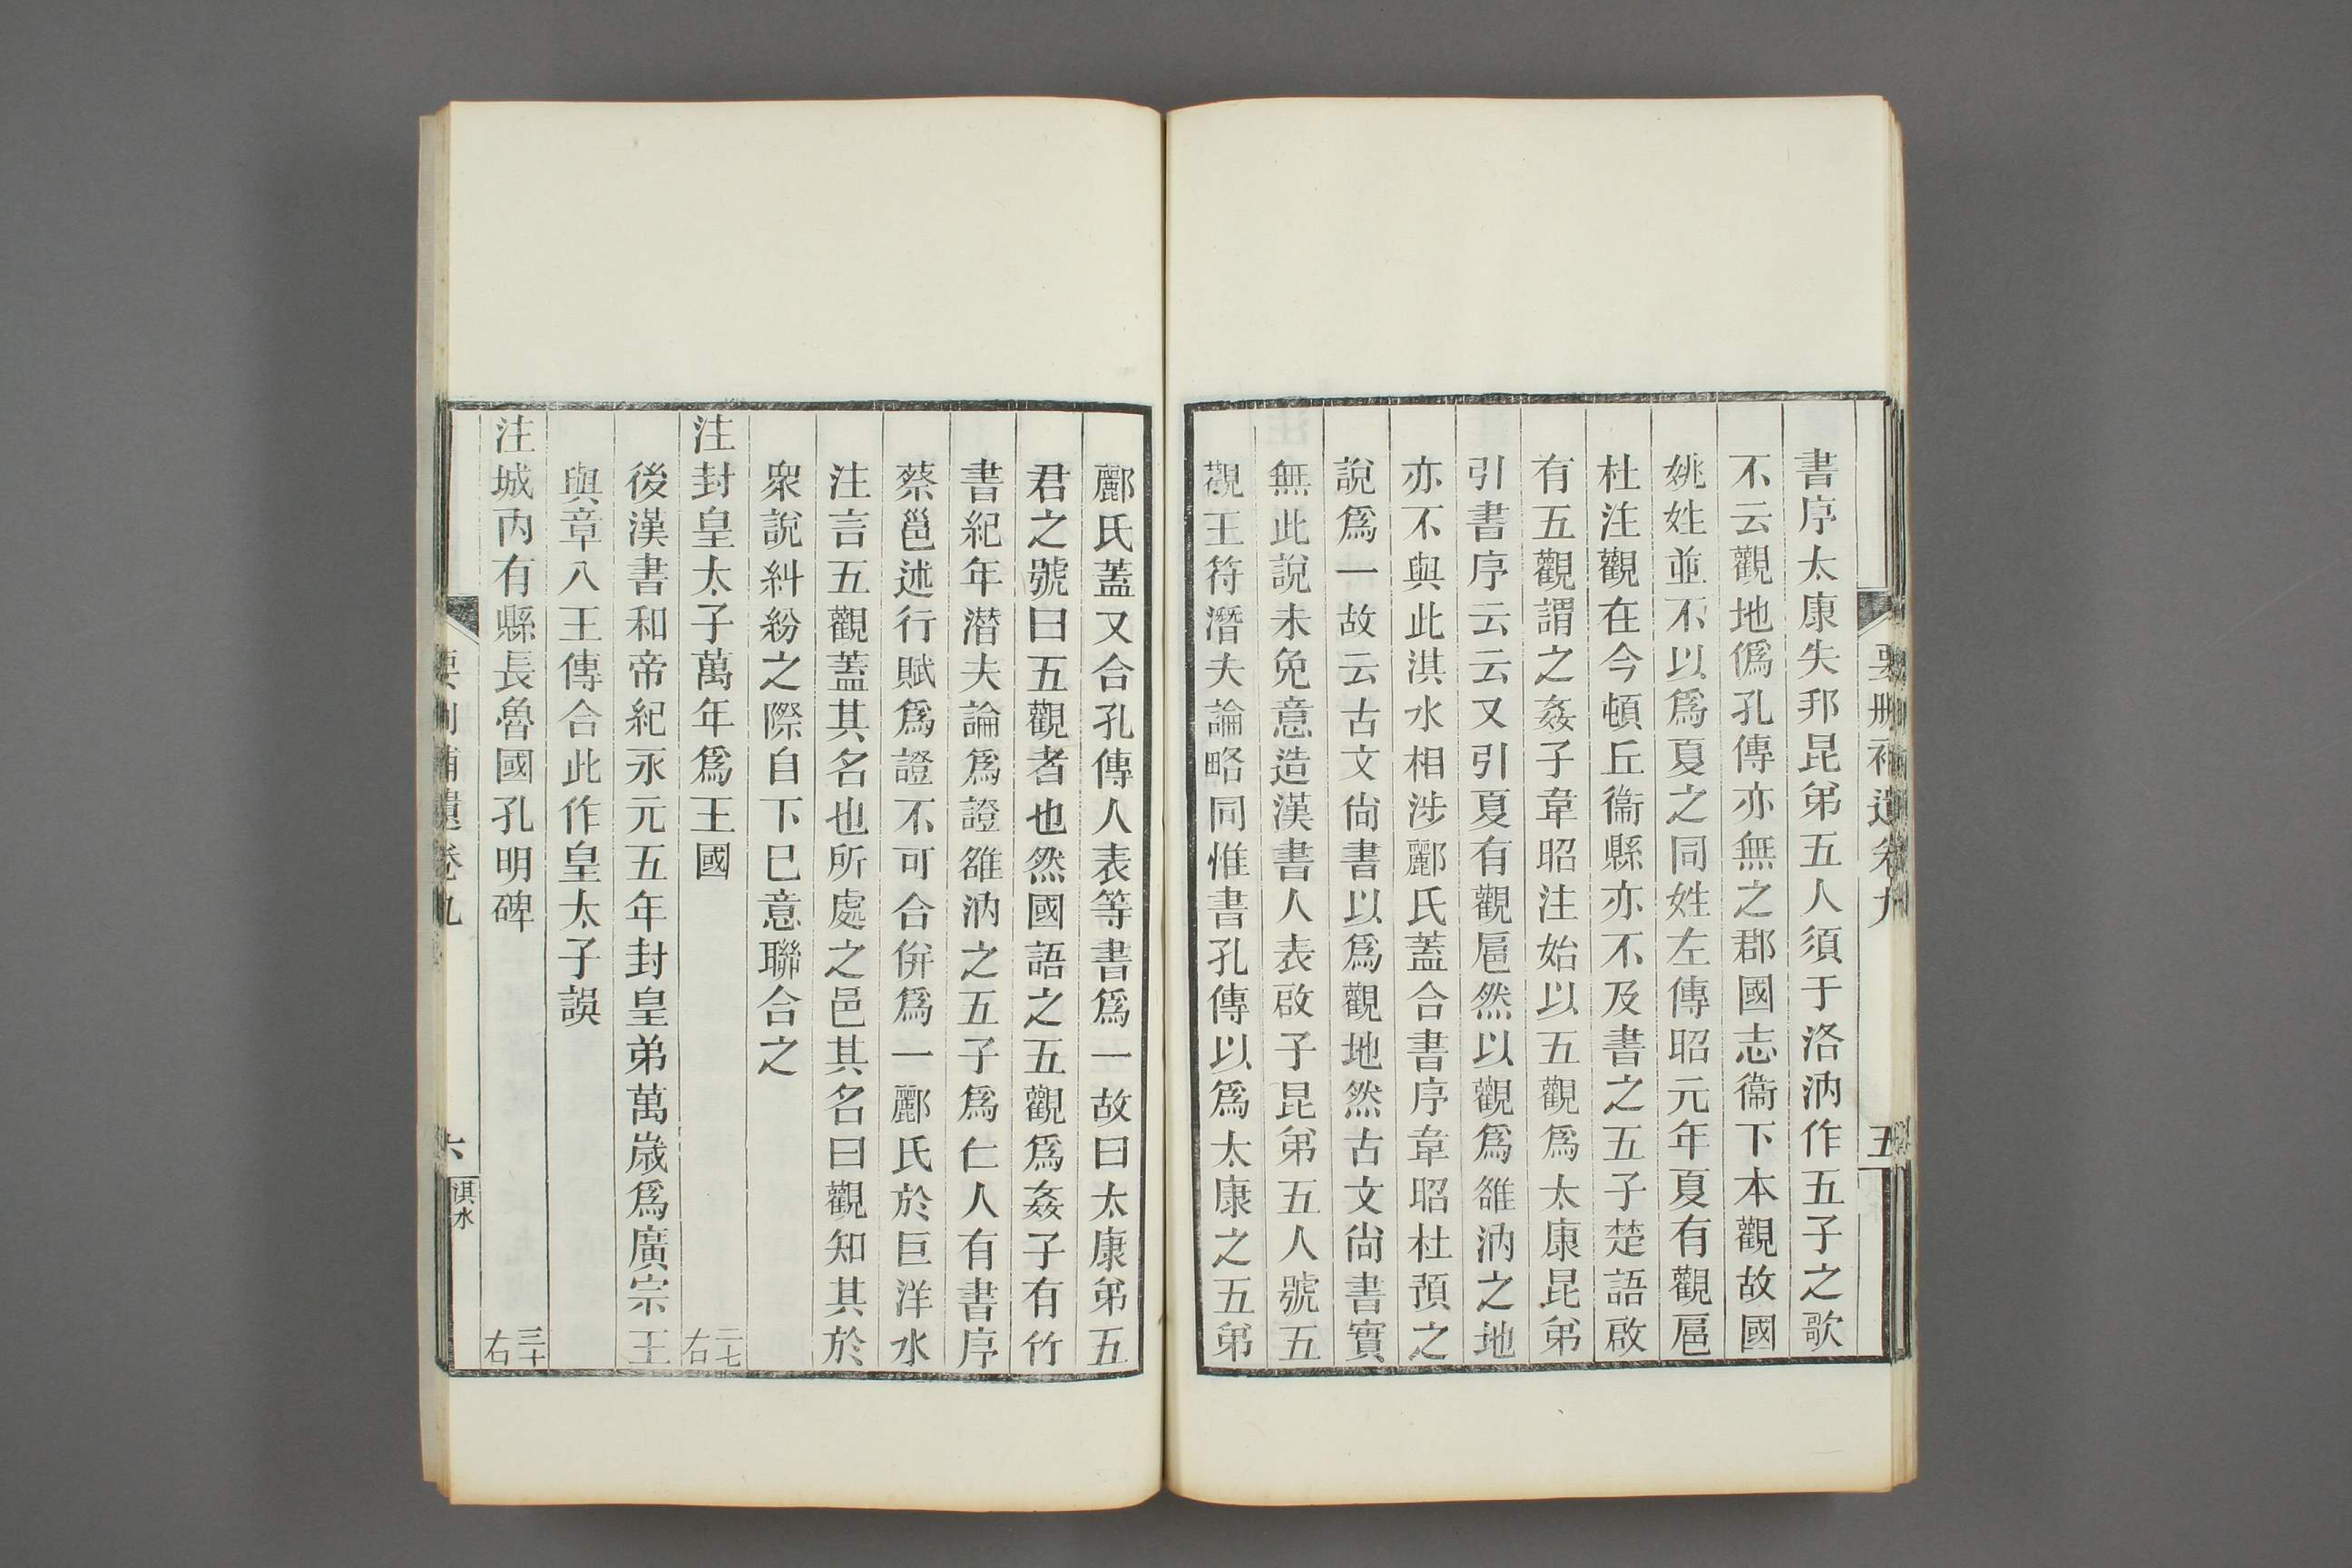 要刪補遺卷九
五
書序太康失邦昆弟五人須于洛汭作五子之歌
不云觀地僞孔傳亦無之郡國志衞下本觀故國
姚姓並不以爲夏之同姓左傳昭元年夏有觀扈
杜注觀在今頓丘衞縣亦不及書之五子楚語啟
有五觀謂之姦子韋昭注始以五觀爲太康昆弟
引書序云云又引夏有觀扈然以觀爲雒汭之地
亦不與此淇水相涉酈氏蓋合書序韋昭杜預之
說爲一故云古文尙書以爲觀地然古文尙書實
無此說未免意造漢書人表啟子昆弟五人號五
觀王符潛夫論略同惟書孔傳以爲太康之五弟
酈氏蓋又合孔傳人表等書爲一故曰太康弟五
君之號曰五觀者也然國語之五觀爲姦子有竹
書紀年潛夫論爲證雒汭之五子爲仁人有書序
蔡邕述行賦爲證不可合併爲一酈氏於巨洋水
注言五觀蓋其名也所處之邑其名曰觀知其於
衆說糾紛之際自下巳意聯合之
注封皇太子萬年爲王國 二七右
後漢書和帝紀永元五年封皇弟萬歲爲廣宗王
與章八王傳合此作皇太子誤
注城內有縣長魯國孔明碑 三十右
要刪補遺卷九
六
淇水